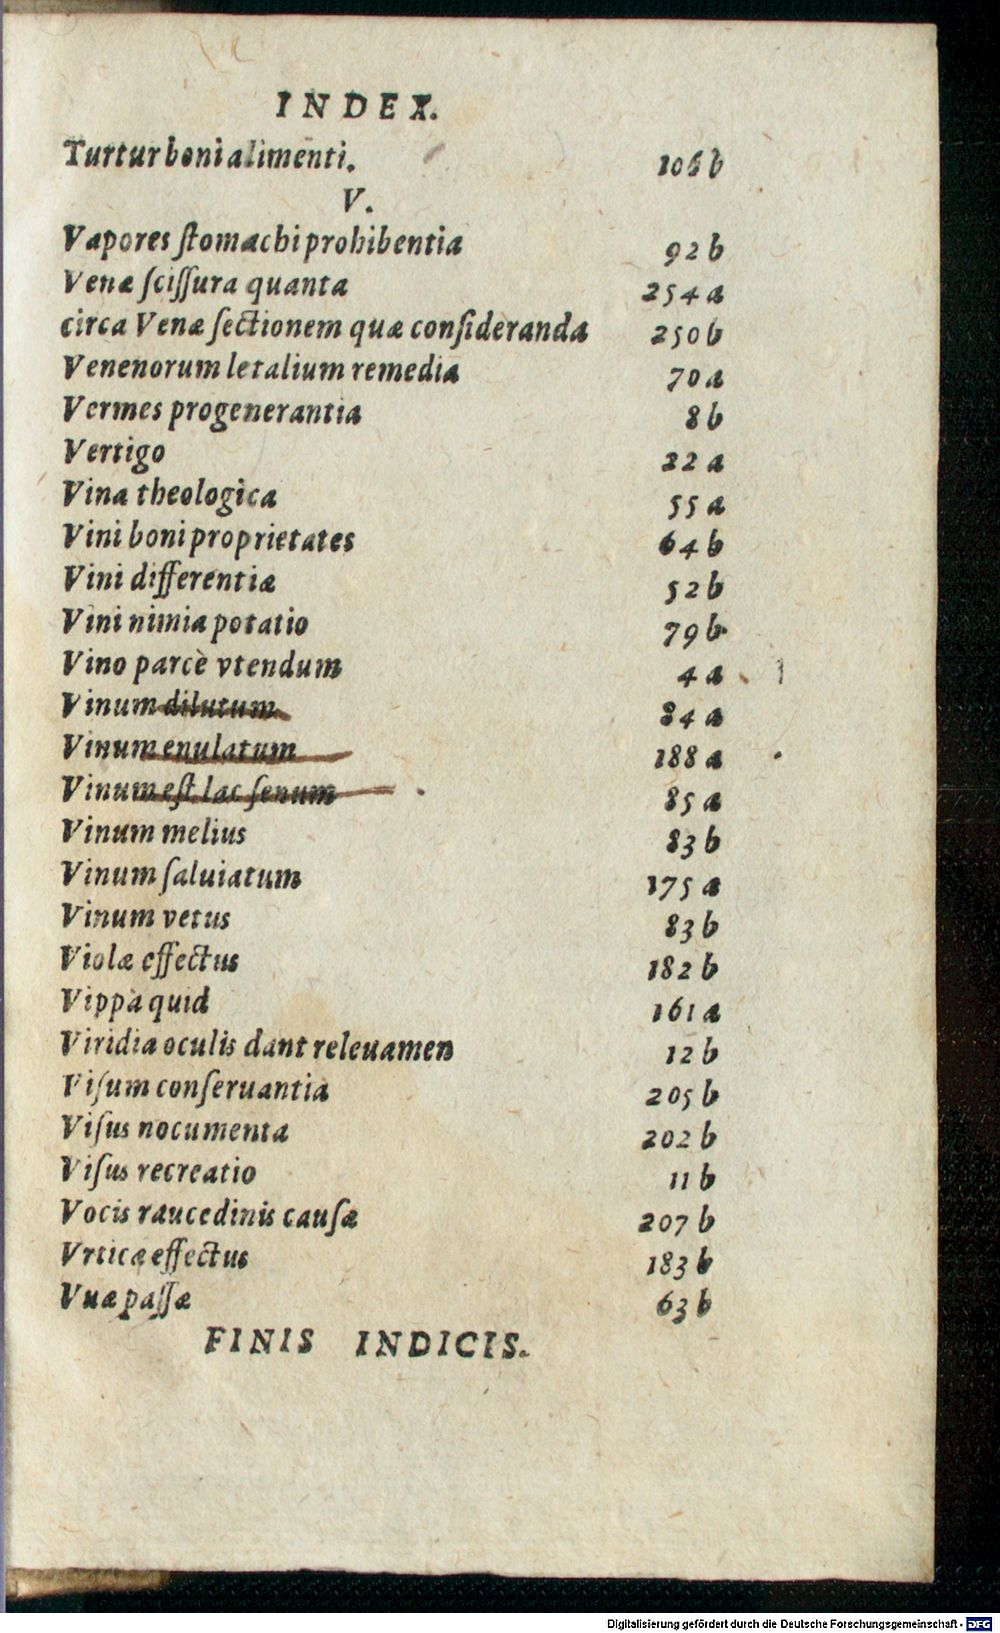 INDEX.
Turtur boni alimenti. 106 b
V.
Vapores ſtomachi prohibentia 92 b
Venæ ſciſſura quanta 254 a
circa Venæ ſectionem quæ conſideranda 250 b
Venenorum letalium remedia 70 a
Vermes progenerantia 8 b
Vertigo 22 a
Vina theologica 55 a
Vini boni proprietates 64 b
Vini differentiæ 52 b
Vini nimia potatio 79 b
Vino parcè vtendum 4 a
Vinum dilutum 84 a
Vinum enulatum 188 a
Vinum eſt lac ſenum 85 a
Vinum melius 83 b
Vinum ſaluiatum 175 a
Vinum vetus 83 b
Violæ effectus 182 b
Vippa quid 161 a
Viridia oculis dant releuamen 12 b
Viſum conſeruantia 205 b
Viſus nocumenta 202 b
Viſus recreatio 11 b
Vocis raucedinis cauſæ 207 b
Vrticæ effectus 183 b
Vuæ paſſæ 63 b
FINIS INDICIS.
Digitalisierung gefördert durch die Deutsche Forschungsgemeinschaft - DFG